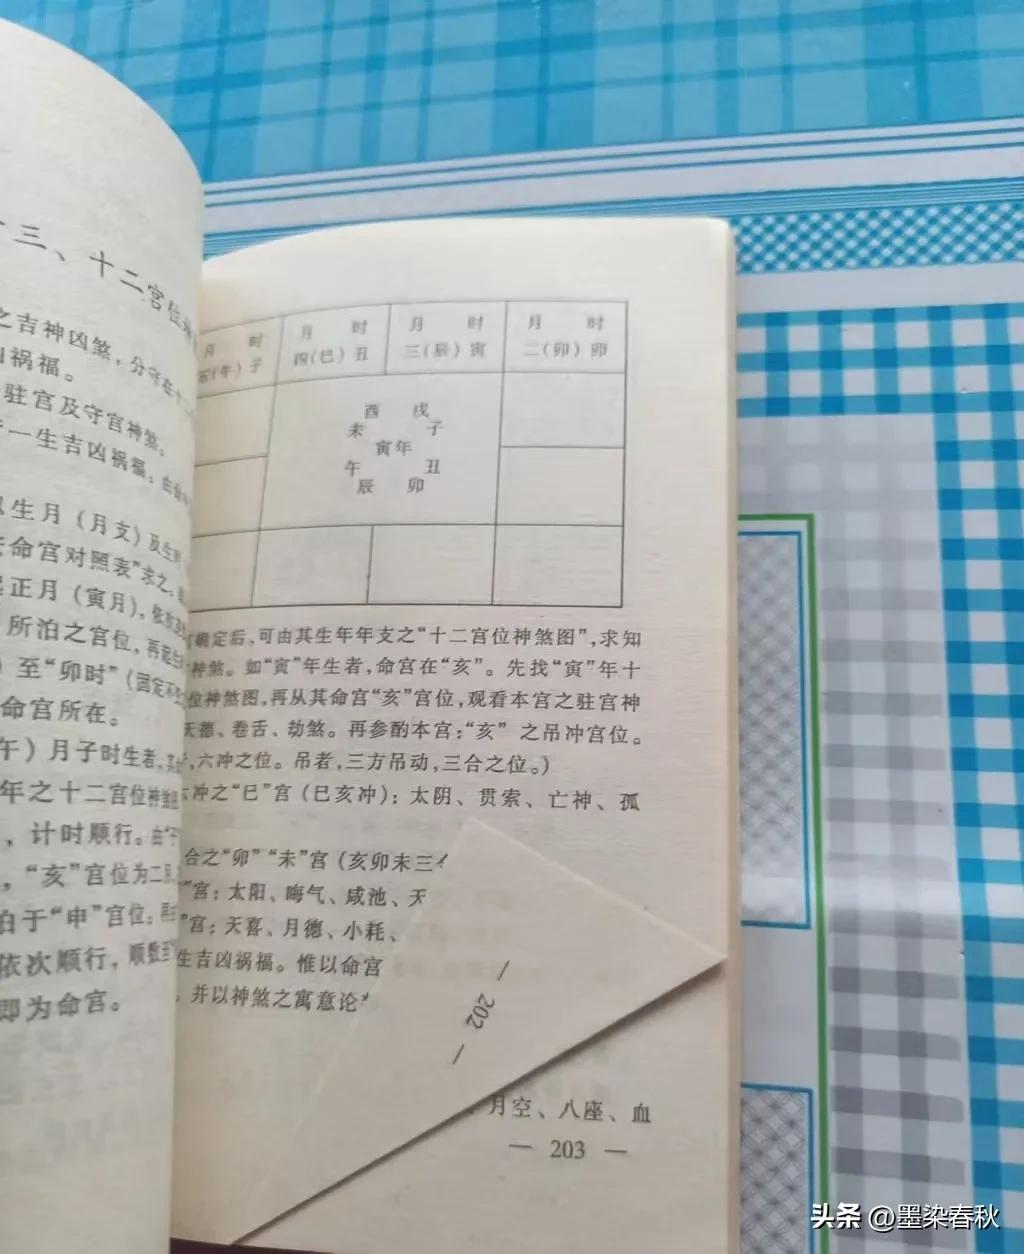 三、十二宫位
之吉神凶煞，分守在十二
凶祸福。
驻宫及守宫神煞。
一生吉凶祸福。由
以生月（月支）及生时
命宫对照表”求之。
起正月（寅月），依次
所泊之宫位，再起生
）至“卯时”（固定不变
命宫所在。
午）月子时生者，
年之十二宫位神煞
，计时顺行。由“子
，“亥”宫位为二月，
泊于“申”宫位；再
依次顺行，顺数至
即为命宫。
月 时 月 时 月 时 月 时
五（午）子 四（巳）丑 三（辰）寅 二（卯）卯
酉 戌
未 子
寅年
午 丑
辰 卯
确定后，可由其生年年支之“十二宫位神煞图”，求知
神煞。如“寅”年生者，命宫在“亥”。先找“寅”年十
位神煞图，再从其命宫“亥”宫位，观看本宫之驻宫神
天德、卷舌、劫煞。再参酌本宫：“亥”之吊冲宫位。
，六冲之位。吊者，三方吊动，三合之位。）
冲之“巳”宫（巳亥冲）：太阴、贯索、亡神、孤
合之“卯”“未”宫（亥卯未三
”宫：太阳、晦气、咸池、天
”宫：天喜、月德、小耗、
生吉凶祸福。惟以命宫
，并以神煞之寓意论
— 202 —
月空、八座、血
— 203 —
头条 @墨染春秋